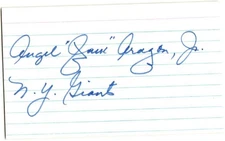 Angel "Jack" Aragon, Jr.
N.Y. Giants